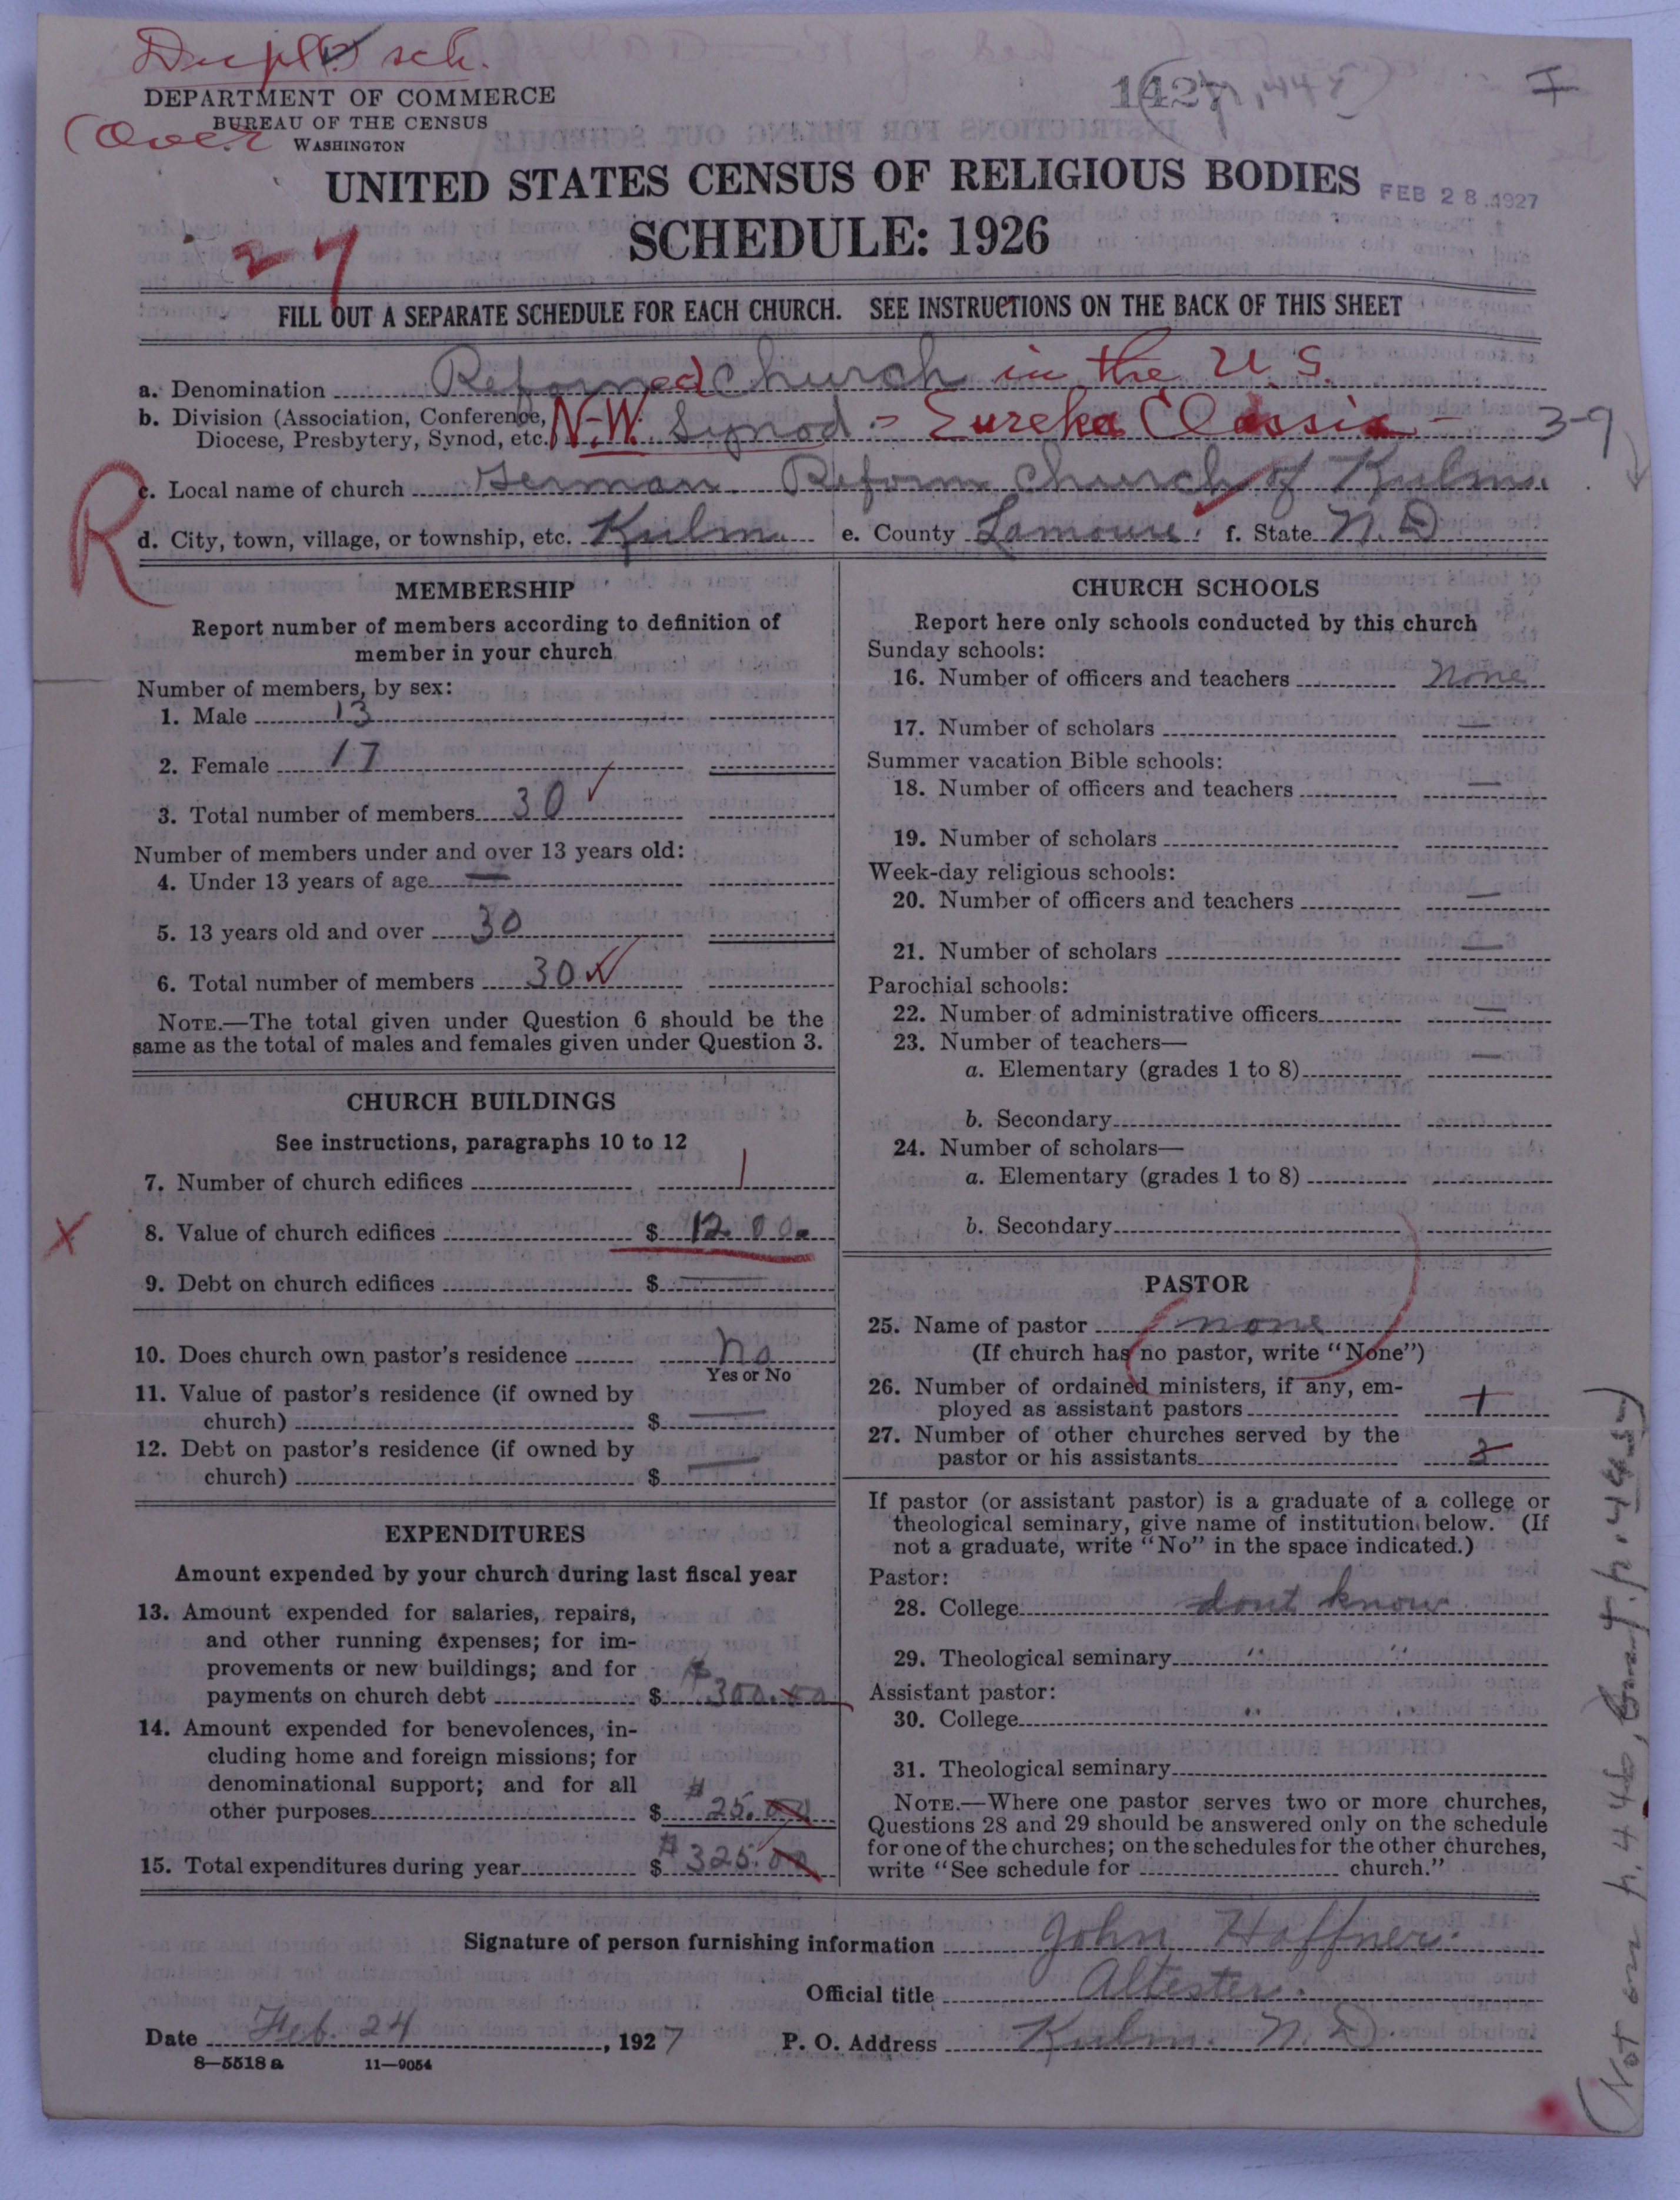 Dupl. sch.
DEPARTMENT OF COMMERCE
BUREAU OF THE CENSUS
(Over
WASHINGTON
UNITED STATES CENSUS OF RELIGIOUS BODIES
FEB 28 1927
SCHEDULE: 1926
27
FILL OUT A SEPARATE SCHEDULE FOR EACH CHURCH. SEE INSTRUCTIONS ON THE BACK OF THIS SHEET
a. Denomination Reformed Church in the U.S.
b. Division (Association, Conference,
Diocese, Presbytery, Synod, etc. N.W. Synod - Eureka Classis - 3-9
R
c. Local name of church German Reform Church of Kulm.
d. City, town, village, or township, etc. Kulm. e. County Lamoure. f. State N.D
MEMBERSHIP
Report number of members according to definition of
member in your church
Number of members, by sex:
1. Male 13
2. Female 17
3. Total number of members 30 ✓
Number of members under and over 13 years old:
4. Under 13 years of age —
5. 13 years old and over 30
6. Total number of members 30 ✓
NOTE.—The total given under Question 6 should be the
same as the total of males and females given under Question 3.
CHURCH BUILDINGS
See instructions, paragraphs 10 to 12
7. Number of church edifices 1
X 8. Value of church edifices $ 12.00.
9. Debt on church edifices $ —
10. Does church own pastor's residence no
Yes or No
11. Value of pastor's residence (if owned by
church) $ —
12. Debt on pastor's residence (if owned by
church) $ —
EXPENDITURES
Amount expended by your church during last fiscal year
13. Amount expended for salaries, repairs,
and other running expenses; for im-
provements or new buildings; and for
payments on church debt $ $300.00
14. Amount expended for benevolences, in-
cluding home and foreign missions; for
denominational support; and for all
other purposes $ $25.00
15. Total expenditures during year $ $325.00
CHURCH SCHOOLS
Report here only schools conducted by this church
Sunday schools:
16. Number of officers and teachers none
17. Number of scholars —
Summer vacation Bible schools:
18. Number of officers and teachers —
19. Number of scholars
Week-day religious schools:
20. Number of officers and teachers —
21. Number of scholars —
Parochial schools:
22. Number of administrative officers —
23. Number of teachers—
a. Elementary (grades 1 to 8) —
b. Secondary
24. Number of scholars—
a. Elementary (grades 1 to 8)
b. Secondary
PASTOR
25. Name of pastor none
(If church has no pastor, write "None")
26. Number of ordained ministers, if any, em-
ployed as assistant pastors 1
27. Number of other churches served by the
pastor or his assistants 3
If pastor (or assistant pastor) is a graduate of a college or
theological seminary, give name of institution below. (If
not a graduate, write "No" in the space indicated.)
Pastor:
28. College dont know
29. Theological seminary " "
Assistant pastor:
30. College " "
31. Theological seminary
NOTE.—Where one pastor serves two or more churches,
Questions 28 and 29 should be answered only on the schedule
for one of the churches; on the schedules for the other churches,
write "See schedule for church."
Signature of person furnishing information John Haffner.
Official title Altester.
Date Feb. 24, 1927 P. O. Address Kulm. N. D.
8—5518 a 11—9054